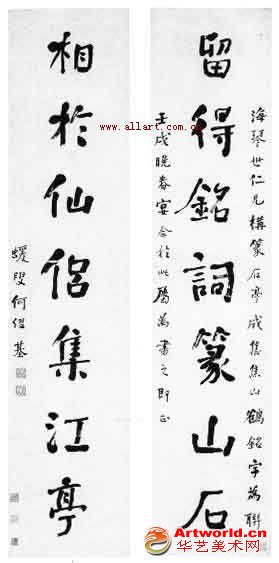 海琴世仁兄構篆石亭成集焦山鶴銘字為聯
留得銘詞篆山石
壬戌晚春宴合於此屬為書之即正
相於仙侶集江亭
蝯叟何紹基
www.allart.com.cn
Artworld.cn
华艺美术网